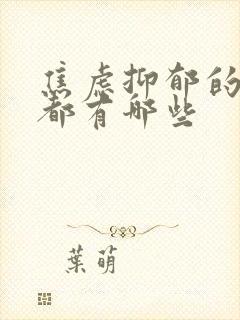 焦虑抑郁的
都有哪些
葉萌